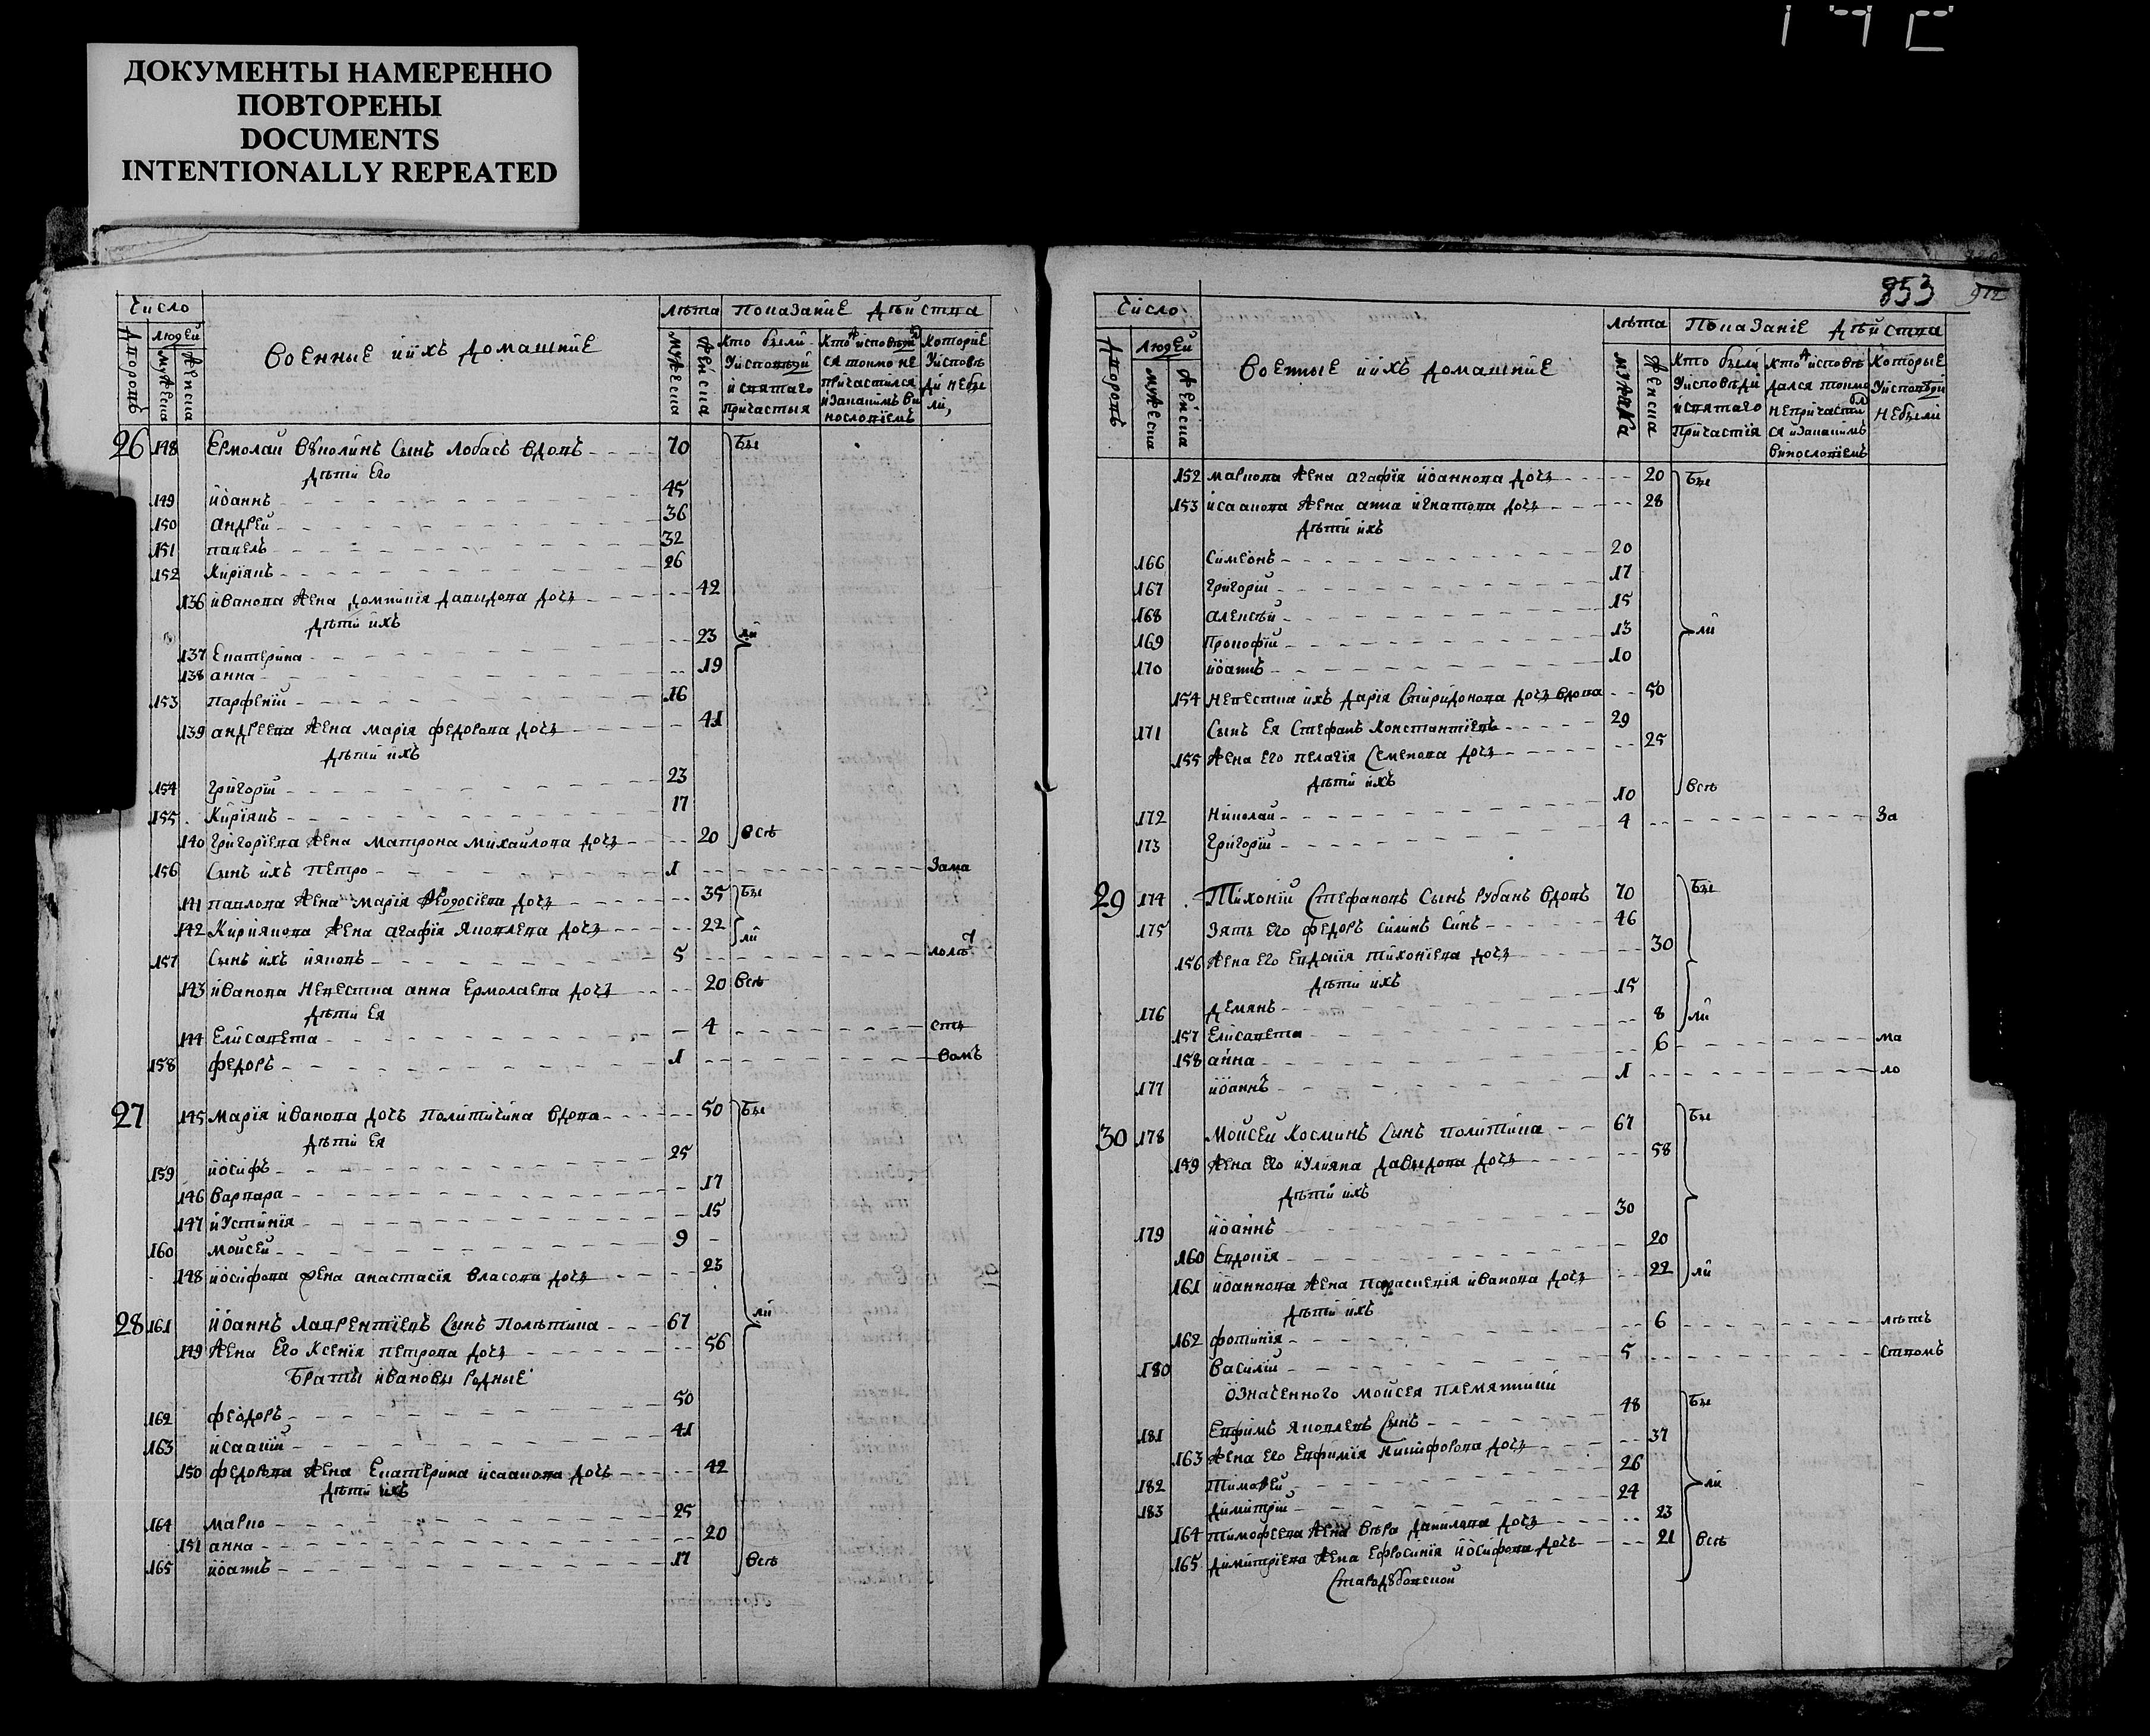 ДОКУМЕНТЫ НАМЕРЕННО
ПОВТОРЕНЫ
DOCUMENTS
INTENTIONALLY REPEATED
853
Число
Людей
Военные и ихъ домашние
Лѣта
Показание действа
26 148 Ермолай Вѣколинъ Сынъ Лобасъ вдовъ 70 Бы
Дѣти Его
149 Иоаннъ 45
150 Андрей 36
151 Павелъ 32
152 Кириянъ 26
136 Иванова жена Домникия Давыдова дочь 42
Дѣти ихъ
137 Екатерина 23 ли
138 анна 19
153 Парфений 16
139 андреева жена мария федорова дочь 41
Дѣти ихъ
154 Григорий 23
155 Кириянъ 17
140 Григориева жена матрона михайлова дочь 20 Всѣ
156 Сынъ ихъ Петро 1 Зама
141 павлова жена мария Ѳеодосиева дочь 35 Бы
142 Кириянова жена агафия яковлева дочь 22 ли
157 Сынъ ихъ ияковъ 5 лолѣт
143 иванова невестка анна Ермолаева дочь 20 Всѣ
Дѣти Ея
144 Елисавета 4 сть
158 федоръ 1 вомъ
27 145 Мария иванова дочь Политичина вдова 50 Бы
Дѣти Ея
159 иосифъ 25
146 Варвара 17
147 иустиния 15
160 моисей 9
148 иосифова жена анастасия власова дочь 23
28 161 Иоаннъ Лаврентиевъ Сынъ Полѣтика 67 ли
149 жена Его Ксения петрова дочь 56
Браты ивановы родные
162 феодоръ 50
163 исаакий 41
150 федорова жена Екатерина исаакова дочь 42
Дѣти ихъ
164 марко 25
151 анна 20
165 иоаннъ 17 Всѣ
Число
Людей
Военные и ихъ домашние
Лѣта
Показание действа
152 маркова жена агафия иоаннова дочь 20 Бы
153 исаакова жена анна игнатова дочь 28
Дѣти ихъ
166 Симеонъ 20
167 Григорий 17
168 алексѣй 15
169 Прокофий 13 ли
170 иоаннъ 10
154 невестка ихъ дария Спиридонова дочь вдова 50
171 Сынъ Ея Стефанъ Константиевъ 29
155 жена его пелагия Семенова дочь 25
Дѣти ихъ
172 Николай 10 Всѣ
173 Григорий 4 За
29 174 Тихоний Стефановъ Сынъ Рубанъ вдовъ 70 Бы
175 Зять его федоръ силинъ синъ 46
156 жена его Евдокия тихониева дочь 30
Дѣти ихъ
176 Демянъ 15
157 Елисавета 8 ли
158 анна 6 ма
177 иоаннъ 1 ло
30 178 Моисей Косминъ Сынъ Политика 67 Бы
159 жена его иулияна давыдова дочь 58
Дѣти ихъ
179 иоаннъ 30
160 Евдокия 20
161 иоаннова жена параскевия иванова дочь 22 ли
Дѣти ихъ
162 фотиния 6 лѣтъ
180 василий 5 ствомъ
Означенного моисея племянники
181 Евфимъ яковлевъ Сынъ 48 Бы
163 жена его Евфимия никифорова дочь 37
182 Тимофей 26
183 димитрий 24 ли
164 тимофеева жена вѣра данилова дочь 23
165 димитриева жена Ефросиния иосифова дочь 21 Всѣ